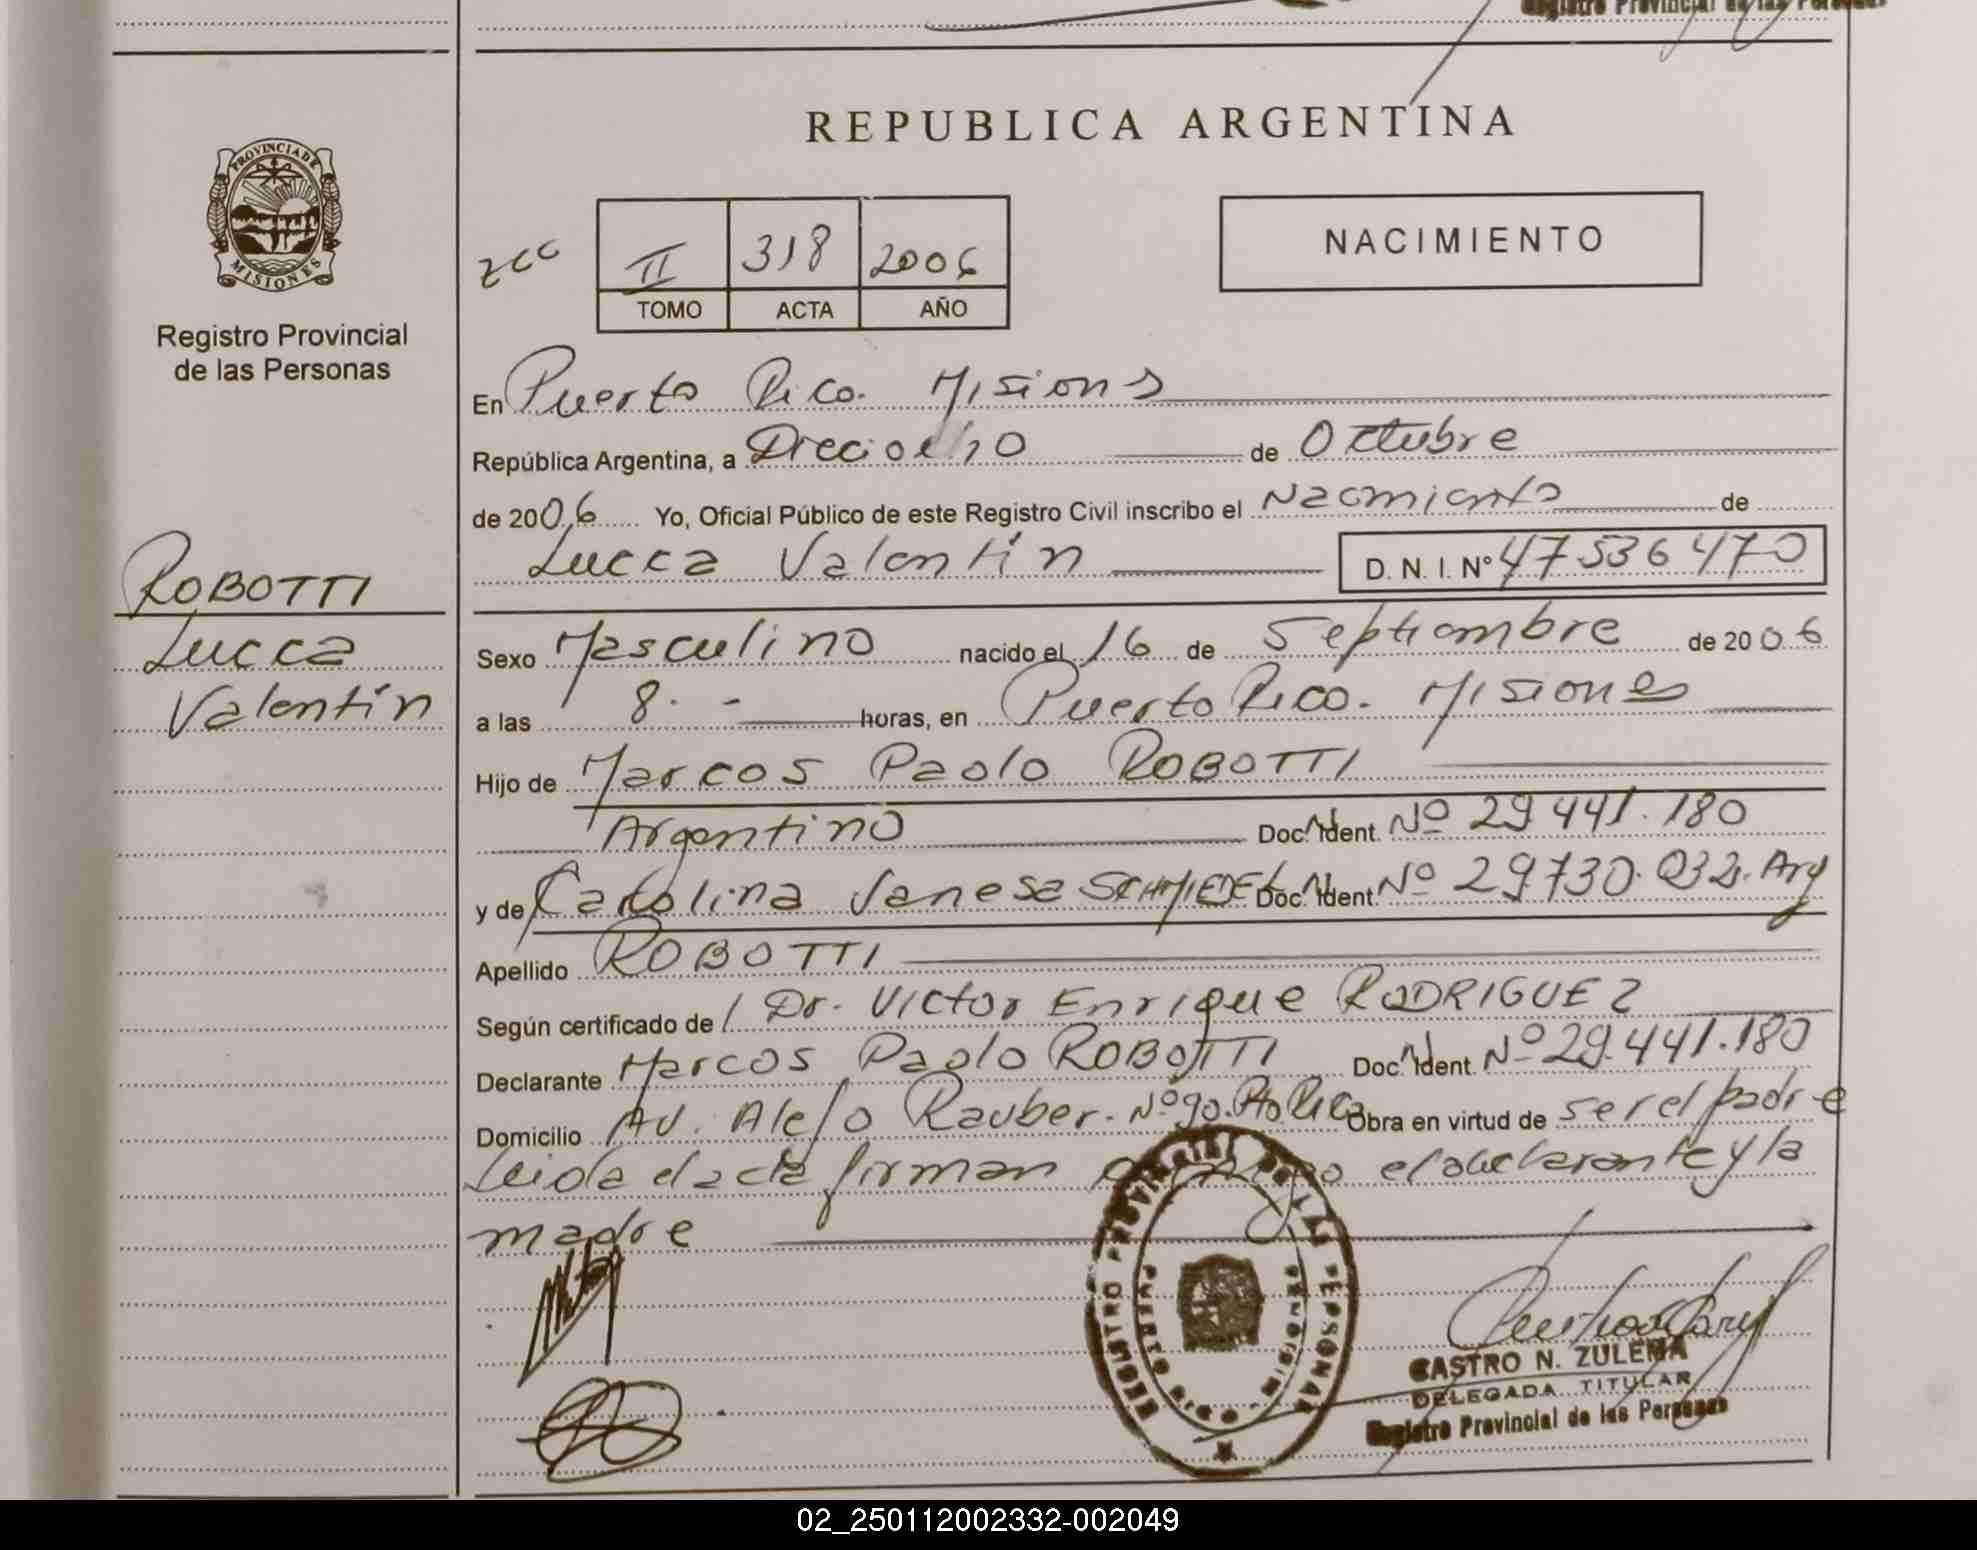 Registro Provincial de las Personas
REPUBLICA ARGENTINA
PROVINCIA DE
MISIONES
Registro Provincial
de las Personas
II 318 2006
TOMO ACTA AÑO
NACIMIENTO
En Puerto Rico. Misions
República Argentina, a Dieciocho de Octubre
de 2006 Yo, Oficial Público de este Registro Civil inscribo el Nacimiento de
Lucca Valentín D. N. I. Nº 47536470
ROBOTTI
Lucca
Valentín
Sexo Masculino nacido el 16 de Septiembre de 2006
a las 8. - horas, en Puerto Rico. Misiones
Hijo de Marcos Paolo ROBOTTI
Argentino Doc. Ident. Nº 29441.180
y de Carolina Vanesa SCHMIEDEL Doc. Ident. Nº 29.730.032. Arg
Apellido ROBOTTI
Según certificado de Dr. Victor Enrique RODRIGUEZ
Declarante Marcos Paolo ROBOTTI Doc. Ident. Nº 29.441.180
Domicilio Av. Alejo Rauber. Nº 90. Pto Rico Obra en virtud de ser el padre
Leida el acta firman conmigo el declarante y la
madre
REGISTRO PROVINCIAL DE LAS PERSONAS
PUERTO RICO MISIONES
CASTRO N. ZULEMA
DELEGADA TITULAR
Registro Provincial de las Personas
02_250112002332-002049